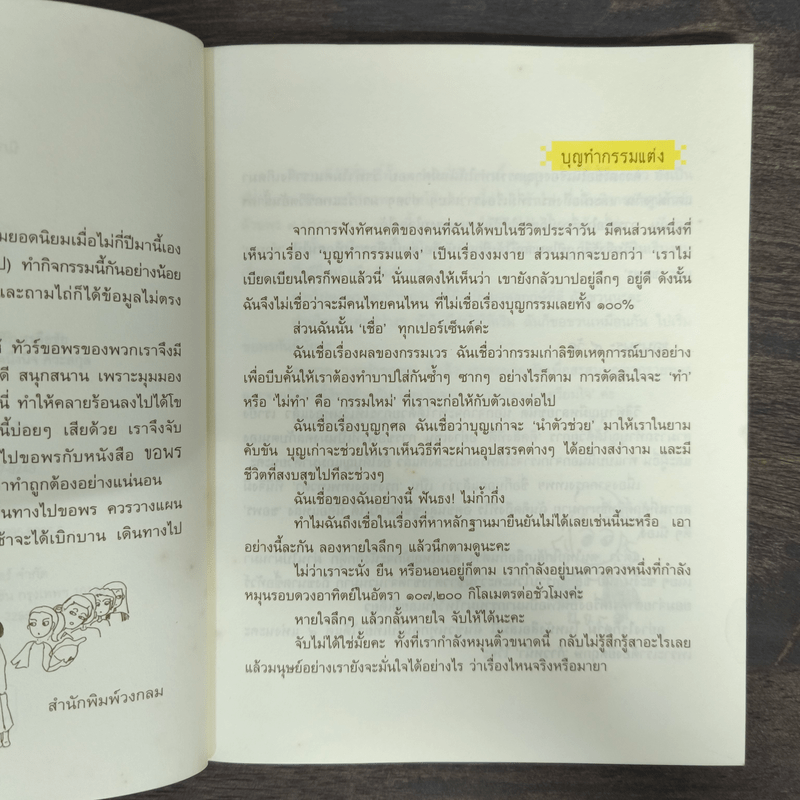 มยอดนิยมเมื่อไม่กี่ปีมานี้เอง
ป) ทำกิจกรรมนี้กันอย่างน้อย
และถามไถ่ก็ได้ข้อมูลไม่ตรง
ทัวร์ขอพรของพวกเราจึงมี
ดี สนุกสนาน เพราะมุมมอง
นี่ ทำให้คลายร้อนลงไปได้โข
นี้บ่อยๆ เสียด้วย เราจึงจับ
ไปขอพรกับหนังสือ ขอพร
าทำถูกต้องอย่างแน่นอน
นทางไปขอพร ควรวางแผน
ช้าจะได้เบิกบาน เดินทางไป
สำนักพิมพ์วงกลม
บุญทำกรรมแต่ง
จากการฟังทัศนคติของคนที่ฉันได้พบในชีวิตประจำวัน มีคนส่วนหนึ่งที่
เห็นว่าเรื่อง ‘บุญทำกรรมแต่ง’ เป็นเรื่องงมงาย ส่วนมากจะบอกว่า ‘เราไม่
เบียดเบียนใครก็พอแล้วนี่’ นั่นแสดงให้เห็นว่า เขายังกลัวบาปอยู่ลึกๆ อยู่ดี ดังนั้น
ฉันจึงไม่เชื่อว่าจะมีคนไทยคนไหน ที่ไม่เชื่อเรื่องบุญกรรมเลยทั้ง ๑๐๐%
ส่วนฉันนั้น ‘เชื่อ’ ทุกเปอร์เซ็นต์ค่ะ
ฉันเชื่อเรื่องผลของกรรมเวร ฉันเชื่อว่ากรรมเก่าลิขิตเหตุการณ์บางอย่าง
เพื่อบีบคั้นให้เราต้องทำบาปใส่กันซ้ำๆ ซากๆ อย่างไรก็ตาม การตัดสินใจจะ ‘ทำ’
หรือ ‘ไม่ทำ’ คือ ‘กรรมใหม่’ ที่เราจะก่อให้กับตัวเองต่อไป
ฉันเชื่อเรื่องบุญกุศล ฉันเชื่อว่าบุญเก่าจะ ‘นำตัวช่วย’ มาให้เราในยาม
คับขัน บุญเก่าจะช่วยให้เราเห็นวิธีที่จะผ่านอุปสรรคต่างๆ ได้อย่างสง่างาม และมี
ชีวิตที่สงบสุขไปทีละช่วงๆ
ฉันเชื่อของฉันอย่างนี้ ฟันธง! ไม่ก้ำกึ่ง
ทำไมฉันถึงเชื่อในเรื่องที่หาหลักฐานมายืนยันไม่ได้เลยเช่นนี้นะหรือ เอา
อย่างนี้ละกัน ลองหายใจลึกๆ แล้วนึกตามดูนะคะ
ไม่ว่าเราจะนั่ง ยืน หรือนอนอยู่ก็ตาม เรากำลังอยู่บนดาวดวงหนึ่งที่กำลัง
หมุนรอบดวงอาทิตย์ในอัตรา ๑๐๗,๒๐๐ กิโลเมตรต่อชั่วโมงค่ะ
หายใจลึกๆ แล้วกลั้นหายใจ จับให้ได้นะคะ
จับไม่ได้ใช่มั้ยคะ ทั้งที่เรากำลังหมุนติ้วขนาดนี้ กลับไม่รู้สึกรู้สาอะไรเลย
แล้วมนุษย์อย่างเรายังจะมั่นใจได้อย่างไร ว่าเรื่องไหนจริงหรือมายา